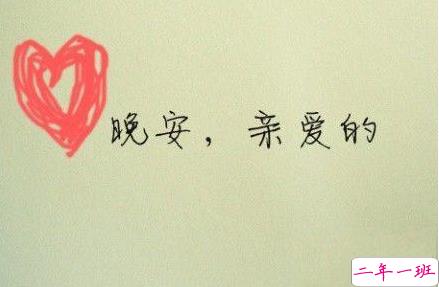 晚安，亲爱的
二年一班